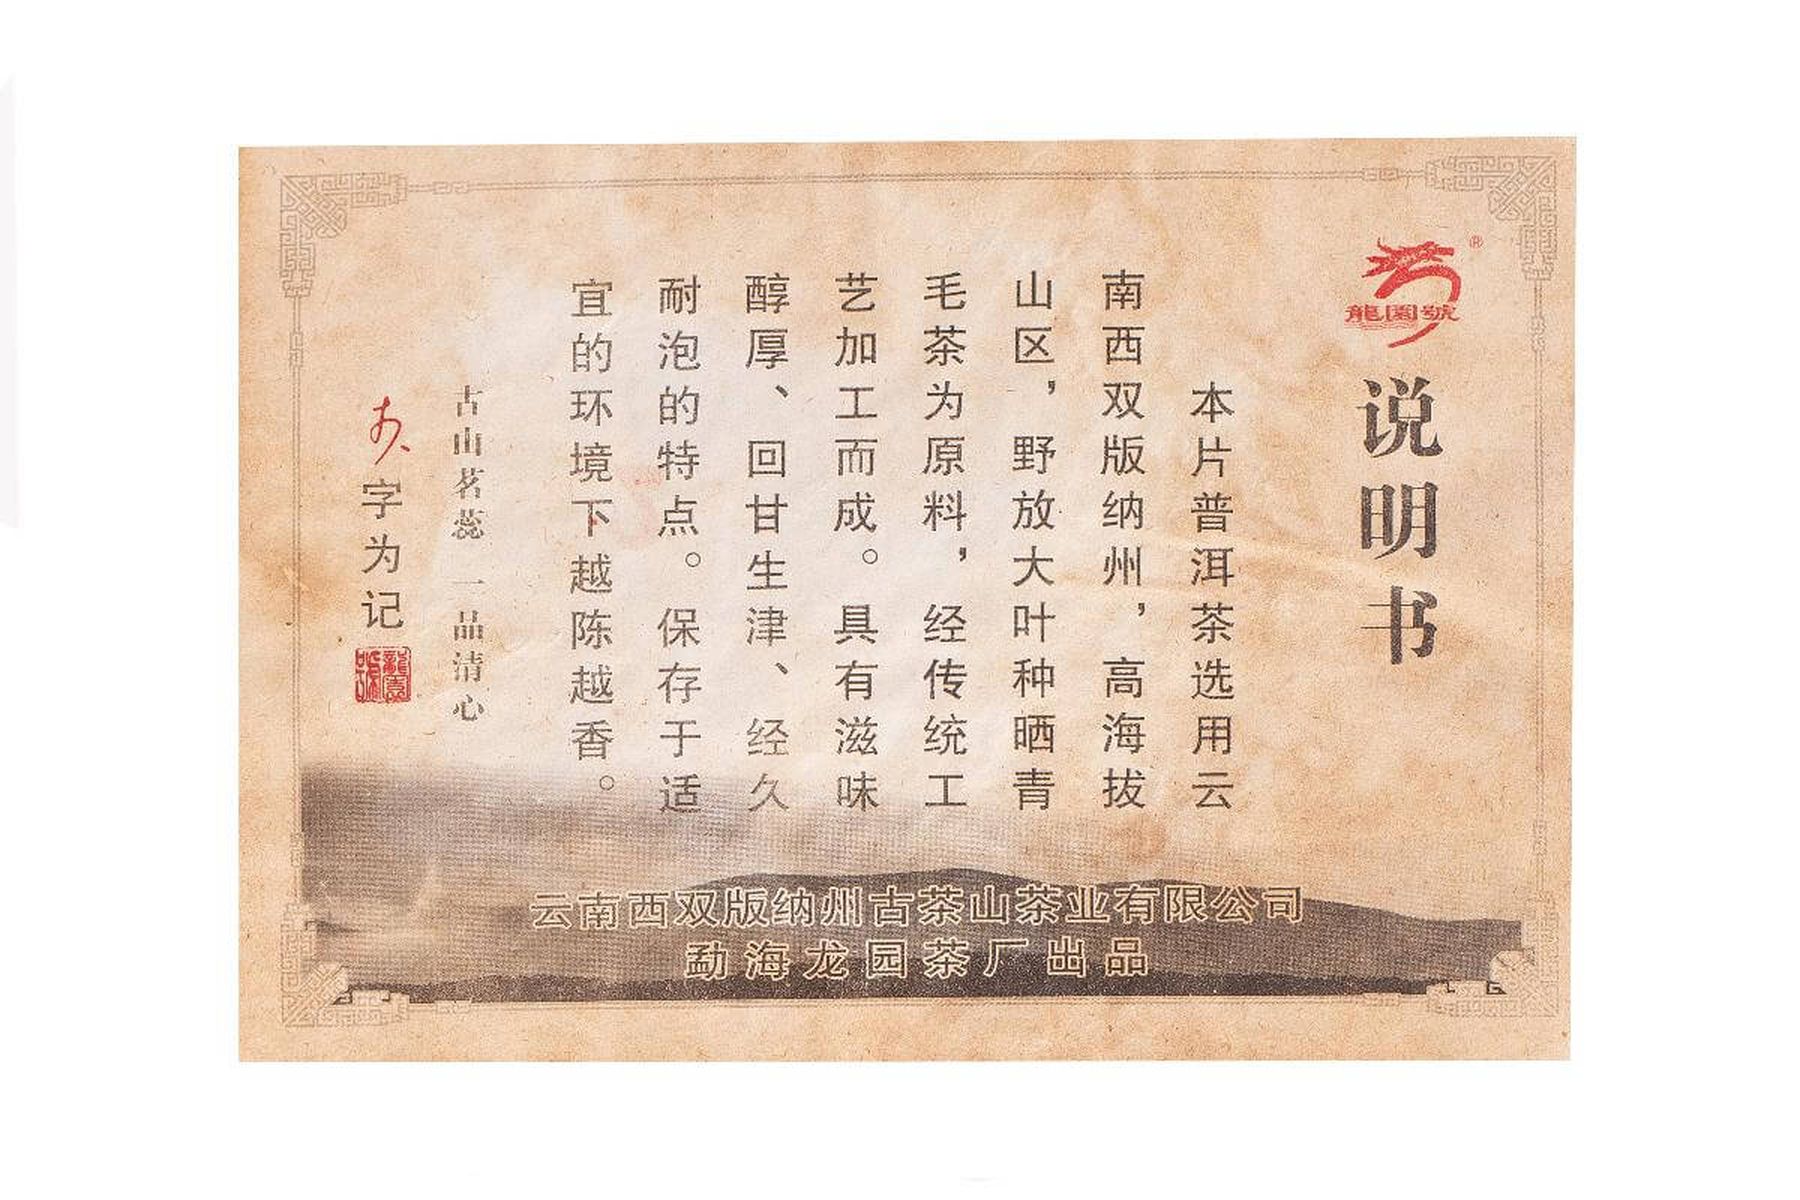 龍園號
®
说明书
本片普洱茶选用云
南西双版纳州，高海拔
山区，野放大叶种晒青
毛茶为原料，经传统工
艺加工而成。具有滋味
醇厚、回甘生津、经久
耐泡的特点。保存于适
宜的环境下越陈越香。
古山茗蕊 一品清心
字为记
龍園號
云南西双版纳州古茶山茶业有限公司
勐海龙园茶厂出品